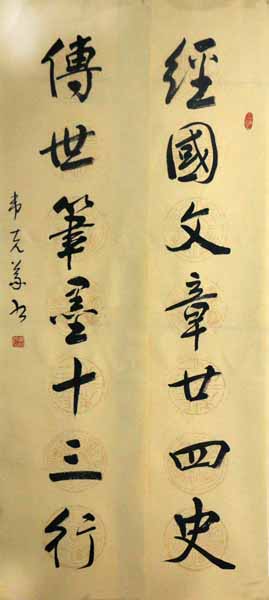 經國文章廿四史
傳世筆墨十三行
韦克义书